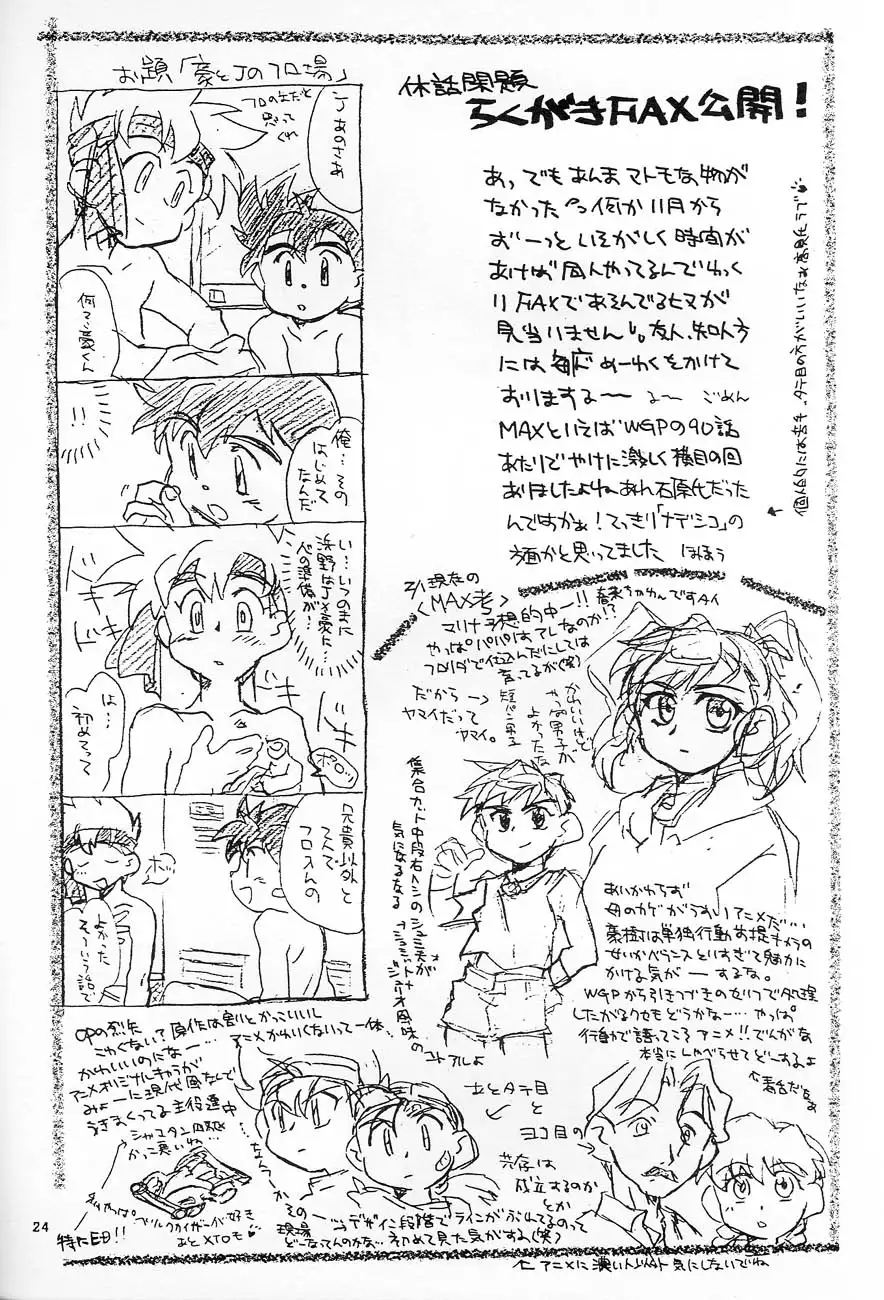 お題「豪とJのフロ場」
フロの中だと
思って
くれ
J あのさあ
何?豪くん
!!
俺…その
はじめて
なんだ
い…いつのまに
浜野はJ×豪に…
心の準備が…
ドキ
ドキ
ドキ
は…
初めてって
兄貴以外と
2人で
フロ入んの
ホッ
よかった
そういう話で
休話閑題
らくがきFAX公開!
あっでもあんまマトモな物が
なかった 何か11月から
ずーっといそがしく時間が
あけば同人やってるんでゆっく
りFAXであそんでるヒマが
見当いません 友人、知人方
には毎応めーわくをかけて
おりまする〜 る〜 ごめん
MAXといえばWGPの90話
あたりでやけに激しく横目の回
ありましたよねあれ石原氏だった
んですかぁ!てっきり「ナデシコ」の
方面かと思ってました ほほう
3/1現在の
〈MAX考〉
マリナ予想的中ー!!
やっぱパパはテレなのか!?
フロリダで仕込んだにしては
育ってるが(笑)
だから→
ヤマイだって
ヤマイ。
短パン男子
かわいいけど
やっぱ男子が
よかったな
集合カット中段右ハシの
気になるなる
あいかわらず
母のカゲがうすいアニメだ…
豪樹は単独行動前提キャラの
せいかバランスといすぎて魅力に
かける気がーするな。
WGPから引きつづきのセリフで処理
したがるクセもどうかなー…やっぱ
行動で語ってこそアニメ!!でんがな
本当にしゃべらせてどーするよ
OPの烈矢
こわくない?原作は割とかっこいいし
かわいいのになー…アニメかわいくないって一体…
アニメオリジナルキャラが
みょーに現代風なんで
うきまくってる主役達中
かっこ悪いね…
特にED!!
あとXTOも
あとタテ目
と
ヨコ目の
共存は
成立するのか
とか
その一
デザイン段階でラインがぶれてるのって
現場
どーなってんのかな…初めて見た気がする(笑)
←アニメに濃い人以外気にしないでね
24